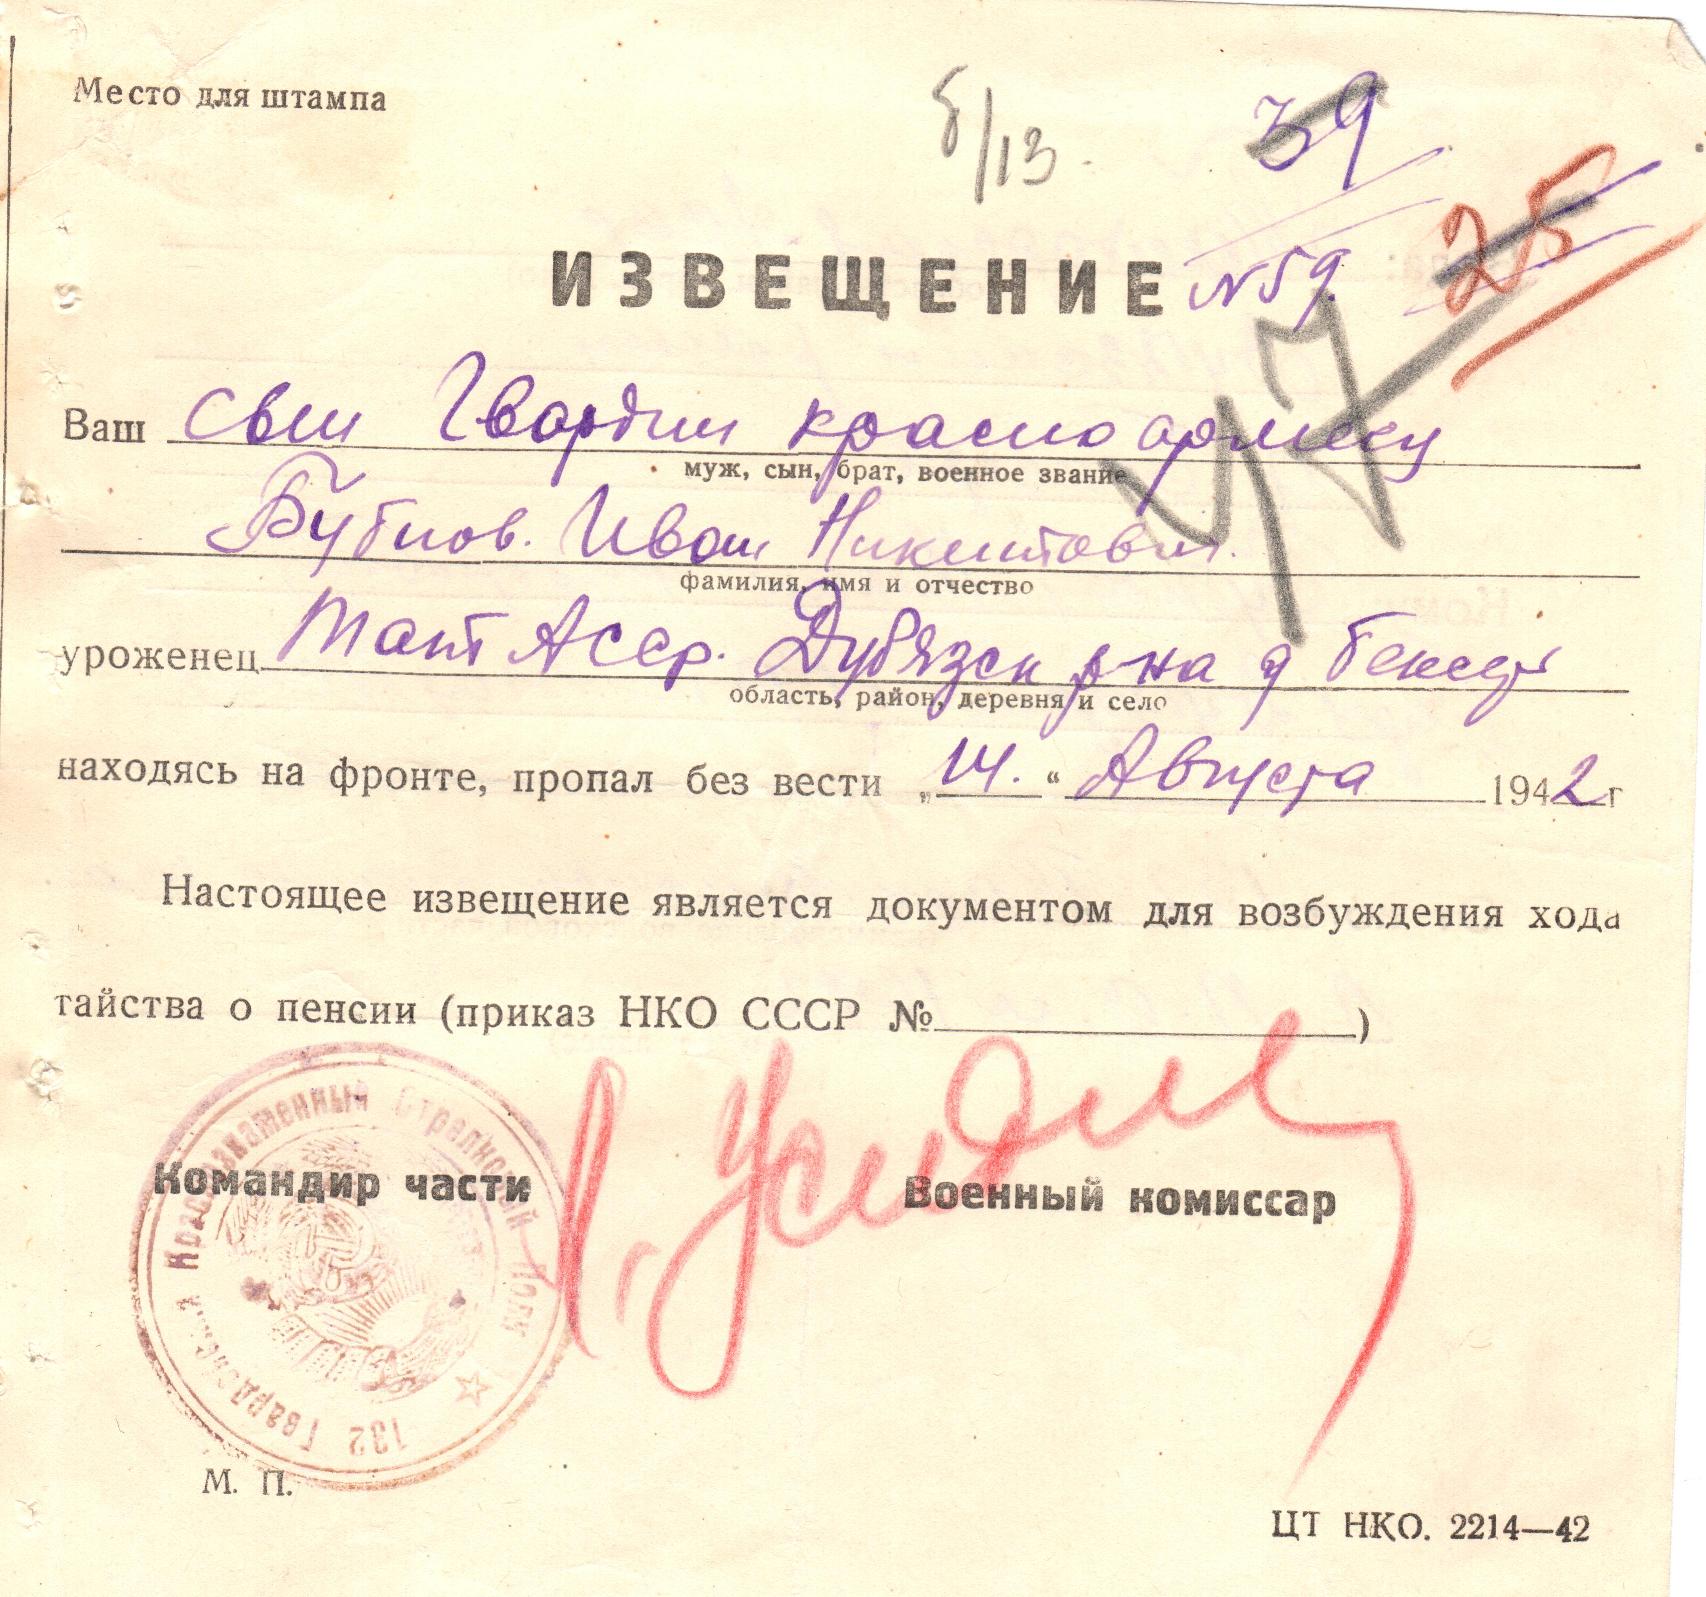 Место для штампа
б/13.
39
25
ИЗВЕЩЕНИЕ N 59.
47
Ваш сын Гвардии красноармеец
муж, сын, брат, военное звание
Бубнов. Иван Никитович.
фамилия, имя и отчество
уроженец Тат АССР. Дубязск р-на д
область, район, деревня и село
находясь на фронте, пропал без вести „14.“ Августа 1942 г
Настоящее извещение является документом для возбуждения хода
тайства о пенсии (приказ НКО СССР № )
Командир части Военный комиссар
132 Гвардейский Краснознаменный Стрелковый Полк
М. П.
ЦТ НКО. 2214—42